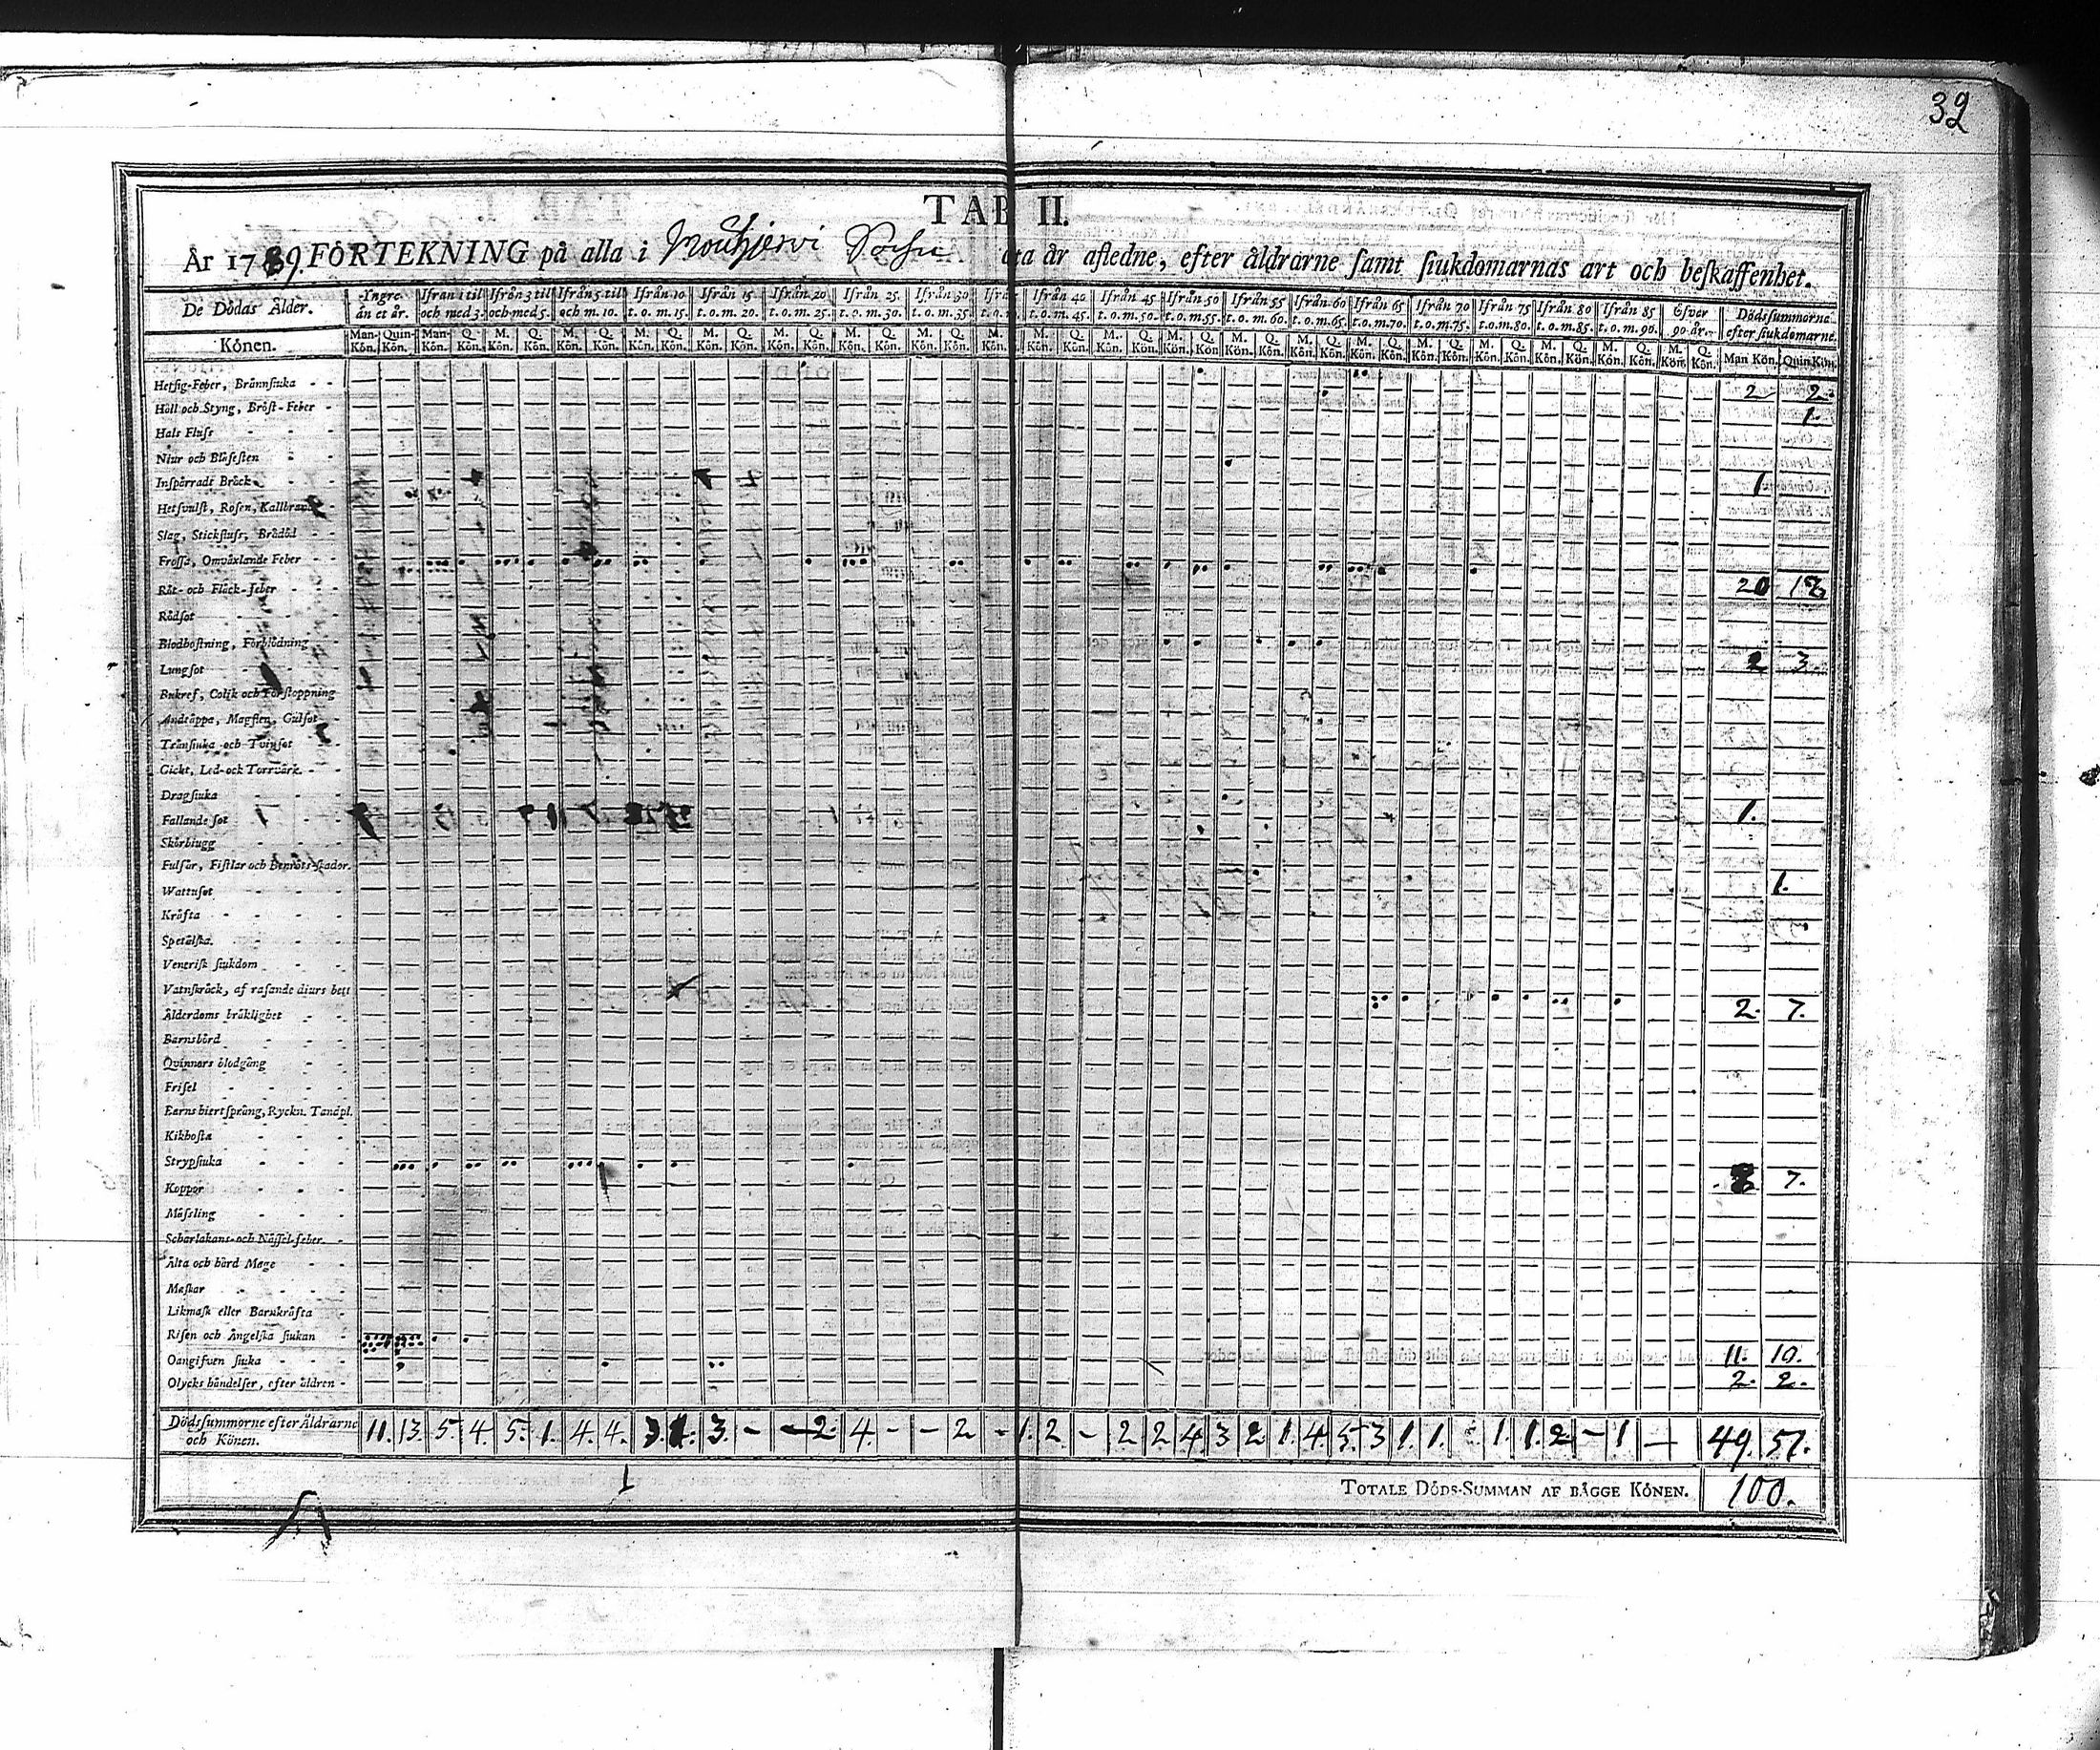 32
TAB II.
År 1789. FÖRTEKNING på alla i Mouhjervi Sokn detta år afledne, efter åldrarne samt siukdomarnas art och beskaffenhet.
De Dödas Ålder. Yngre än et år. Ifrån 1 til och med 3. Ifrån 3 til och med 5. Ifrån 5 til och m. 10. Ifrån 10 t. o. m. 15. Ifrån 15 t. o. m. 20. Ifrån 20 t. o. m. 25. Ifrån 25. t. o. m. 30. Ifrån 30 t. o. m. 35. Ifrån 40 t. o. m. 45. Ifrån 45 t. o. m. 50. Ifrån 50 t. o. m. 55. Ifrån 55 t. o. m. 60. Ifrån 60 t. o. m. 65. Ifrån 65 t. o. m. 70. Ifrån 70 t. o. m. 75. Ifrån 75 t. o. m. 80. Ifrån 80 t. o. m. 85. Ifrån 85 t. o. m. 90. Öfver 90 år. Dödssummorne efter siukdomarne.
Könen. Man-Kön. Quin-Kön. Man-Kön. Q. Kön. M. Kön. Q. Kön. M. Kön. Q. Kön. M. Kön. Q. Kön. M. Kön. Q. Kön. M. Kön. Q. Kön. M. Kön. Q. Kön. M. Kön. Q. Kön. M. Kön. Q. Kön. M. Kön. Q. Kön. M. Kön. Q. Kön. M. Kön. Q. Kön. M. Kön. Q. Kön. M. Kön. Q. Kön. M. Kön. Q. Kön. M. Kön. Q. Kön. M. Kön. Q. Kön. M. Kön. Q. Kön. M. Kön. Q. Kön. Man Kön. Quin Kön.
Hetsig-Feber, Brännsiuka - - 2 2.
Håll och Styng, Bröst-Feber - 1.
Hals Fluss - - -
Niur och Blåsesten - -
Inspärradt Bråck - - - 1
Hetsvulst, Rosen, Kallbrand -
Slag, Stickfluss, Brådöd - -
Frossa, Omväxlande Feber - -
Röt- och Fläck-feber - - 20 18
Rödsot - - - -
Blodhostning, Förblödning -
Lungsot - - 2 3.
Bukref, Colik och Förstoppning
Andtäppa, Magsten, Gulsot -
Tränsiuka och Tvinsot -
Gickt, Led-ock Torrvärk. - -
Dragsiuka - - - -
Fallande sot - - - 1.
Skörbiugg - - - -
Fulsår, Fistlar och Benröts-skador.
Wattusot - - - - 1.
Kräfta - - - - -
Spetälska. - - - -
Venerisk siukdom - - -
Vatnskräck, af rasande diurs bett
Ålderdoms bräklighet - - 2. 7.
Barnsbörd - - - -
Qvinnors blodgång - - -
Frisel - - - - -
Barns hiertsprång, Ryckn. Tandpl.
Kikhosta - - - -
Strypsiuka - - - -
Koppor - - - - 8 7.
Mässling - - - -
Scharlakans-och Nässel-feber. -
Älta och hård Mage - -
Maskar - - - -
Likmask eller Barnkräfta -
Risen och Ängelska siukan - 11. 10.
Oangifven siuka - - - 2. 2.
Olycks händelser, efter äldren -
Dödssummorne efter Äldrarne och Könen. 11. 13. 5. 4. 5. 1. 4. 4. 3. 1. 3. - - 2. 4. - - 2 - 1. 2. - 2 2 4 3 2 1. 4. 5. 3 1. 1. 1. 1. 2 - 1 - 49. 51.
TOTALE DÖDS-SUMMAN AF BÄGGE KÖNEN. 100.